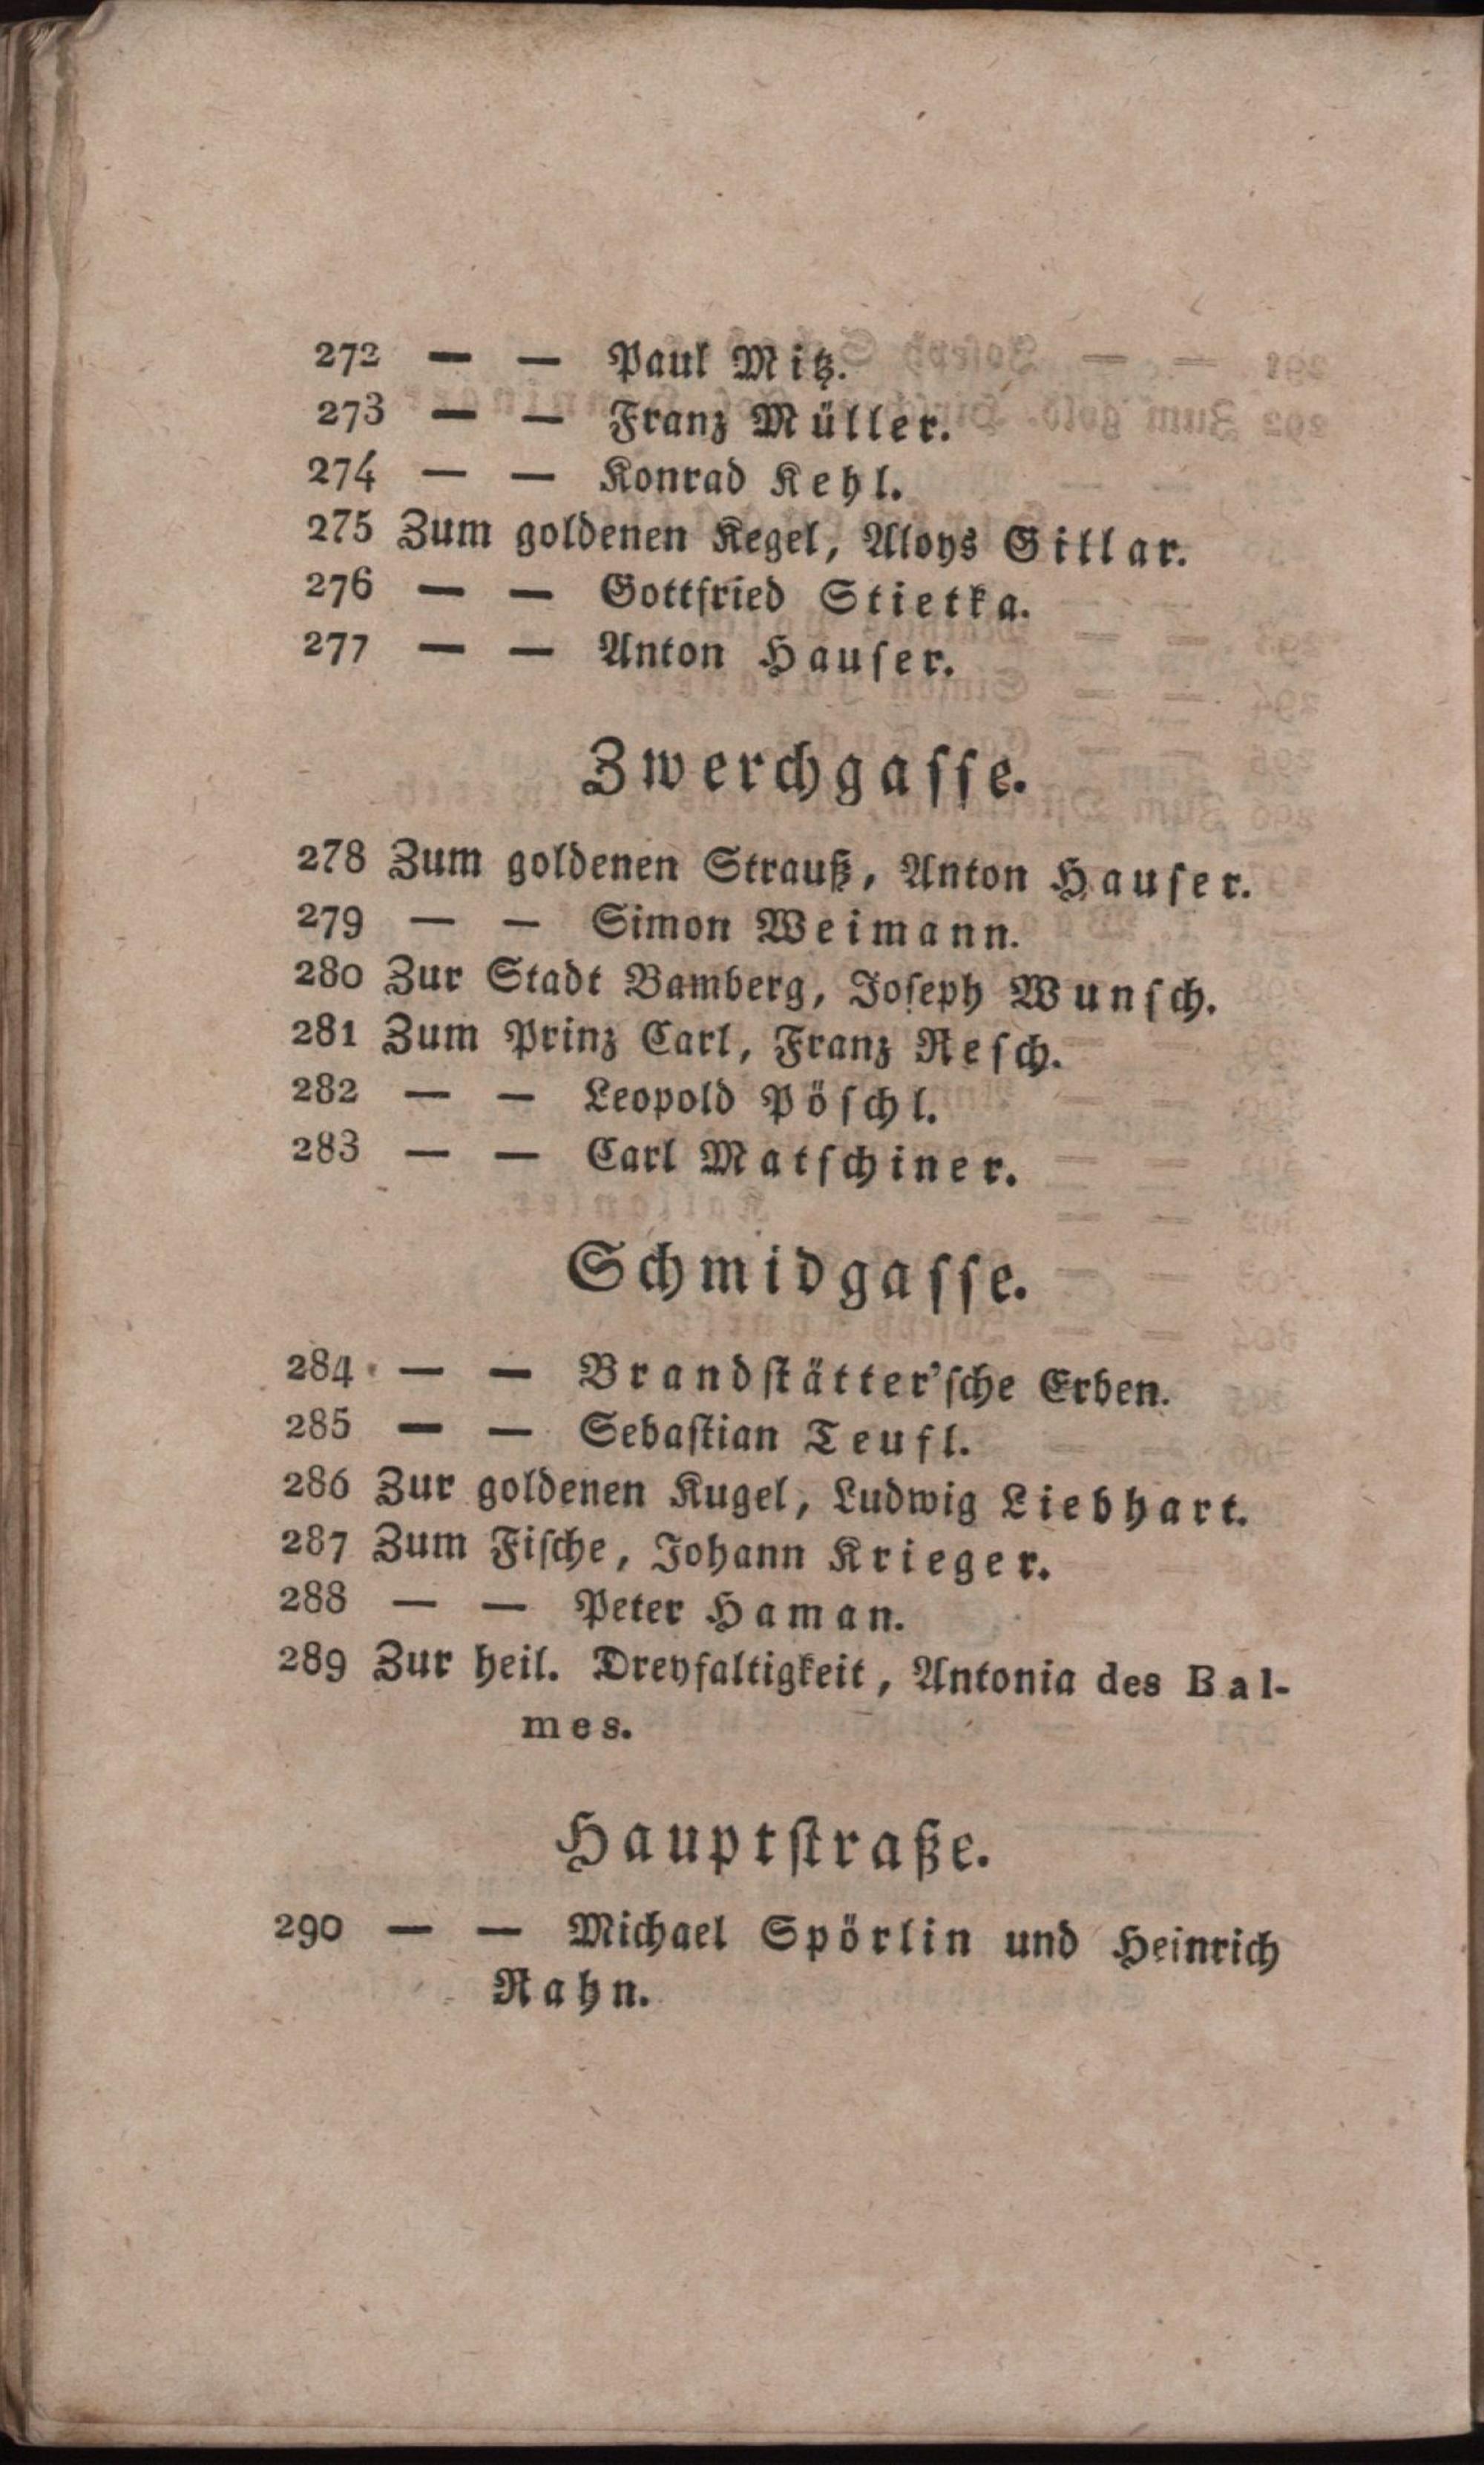 272 — — Paul Mitz.
273 — — Franz Müller.
274 — — Konrad Kehl.
275 Zum goldenen Kegel, Aloys Gillar.
276 — — Gottfried Stietka.
277 — — Anton Hauser.
Zwerchgasse.
278 Zum goldenen Strauß, Anton Hauser.
279 — — Simon Weimann.
280 Zur Stadt Bamberg, Joseph Wunsch.
281 Zum Prinz Carl, Franz Resch.
282 — — Leopold Pöschl.
283 — — Carl Matschiner.
Schmidgasse.
284 — — Brandstätter'sche Erben.
285 — — Sebastian Teufl.
286 Zur goldenen Kugel, Ludwig Liebhart.
287 Zum Fische, Johann Krieger.
288 — — Peter Haman.
289 Zur heil. Dreyfaltigkeit, Antonia des Bal-
mes.
Hauptstraße.
290 — — Michael Spörlin und Heinrich
Rahn.